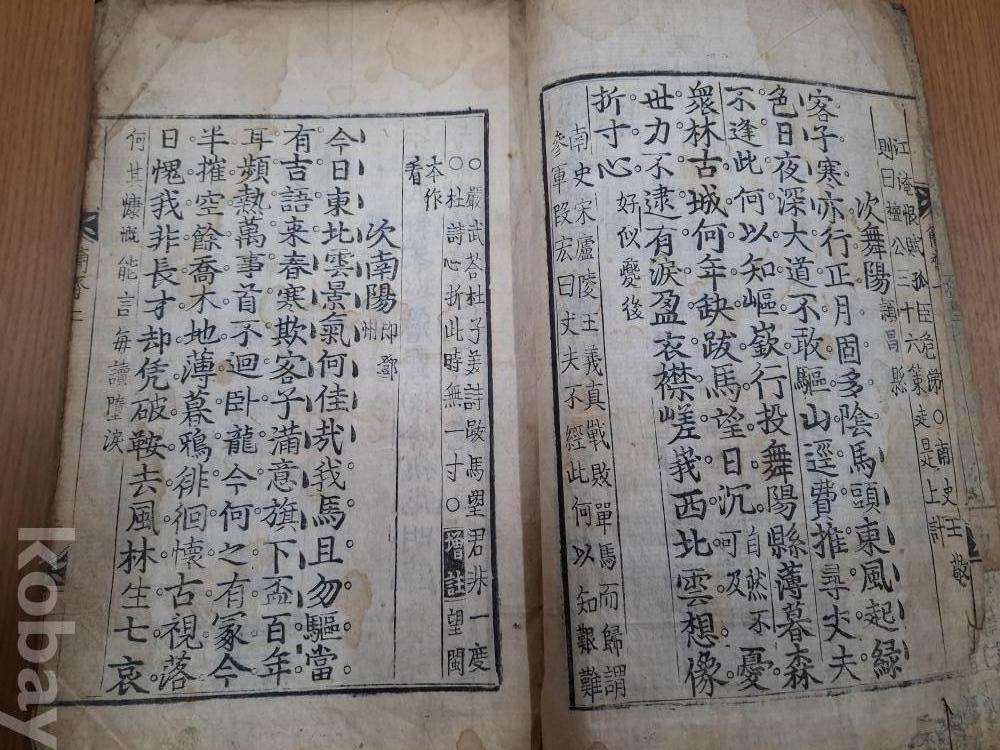 江淹恨賦孤臣危涕○南史王敬
則曰檀公三十六策走是上計
次舞陽
客子寒亦行正月固多陰馬頭東風起綠
色日夜深大道不敢驅山逕費推尋丈夫
不逢此何以知嶇嶔行投舞陽縣薄暮森
衆林古城何年缺跋馬望日沉自然不可及憂
世力不逮有淚盈衣襟嵯峩西北雲想像
折寸心好似夔後
南史宋廬陵王義真戰敗單馬而歸謂
參軍段宏曰丈夫不經此何以知艱難
○嚴武荅杜子美詩跋馬望君非一度
○杜詩心折此時無一寸○增註望閩
本作
看
次南陽即鄧州
今日東北雲景氣何佳哉我馬且勿驅當
有吉語来春寒欺客子滿意旗下盃百年
耳頻熱萬事首不迴卧龍今何之有冢今
半摧空餘喬木地薄暮鴉徘徊懷古視落
日愧我非長才却凭破鞍去風林生七哀
何其慷慨能言每讀墮淚
kobay